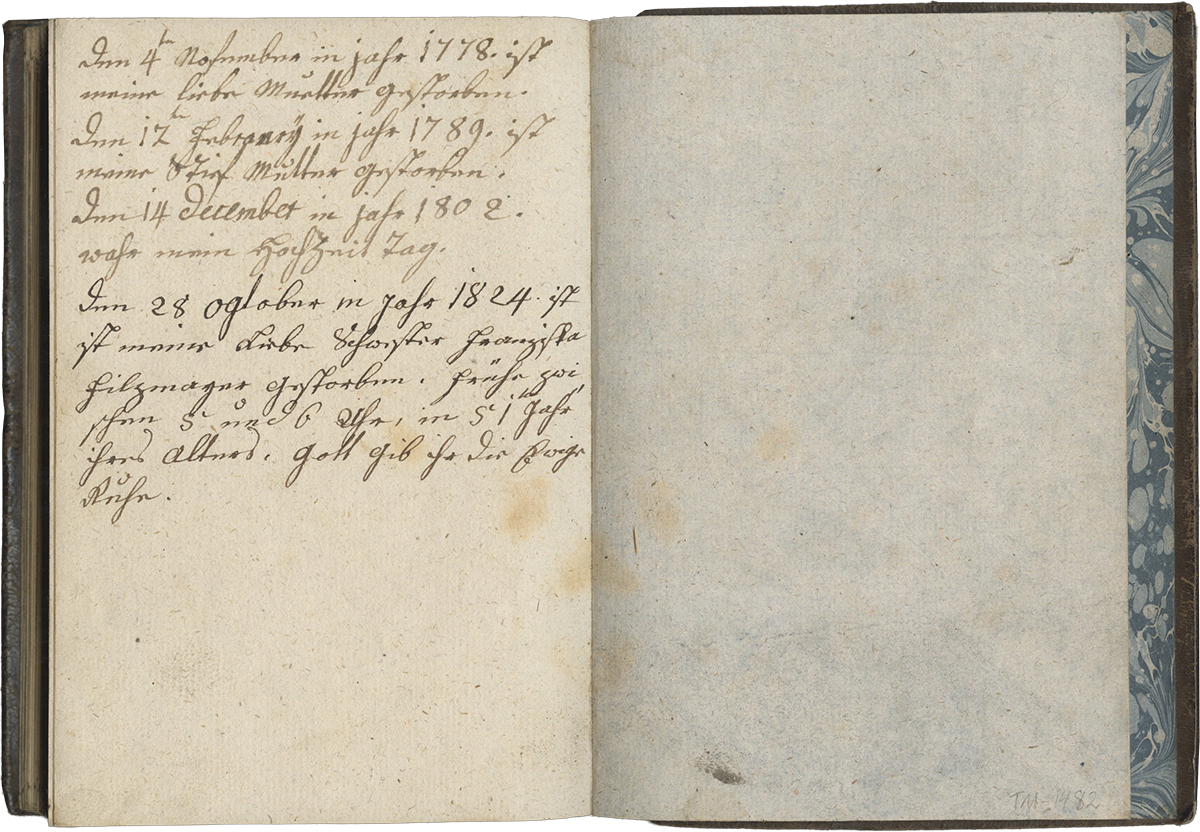 den 4tn November in jahr 1778. ist
meine liebe Muetter gestorben.
den 12tn Februarÿ in jahr 1789. ist
meine Stief Mutter gestorben.
den 14 december in jahr 1802.
wahr mein Hochzeit Tag.
den 28 ogtober in Jahr 1824. ist
ist meine Liebe Schwester Franziska
Hilzmayer gestorben. Frühe zwi
schen 5 und 6 Uhr, in 51tn Jahr
ihres Alters. Gott gib ihr die Ewige
Ruhe.
TM-1482